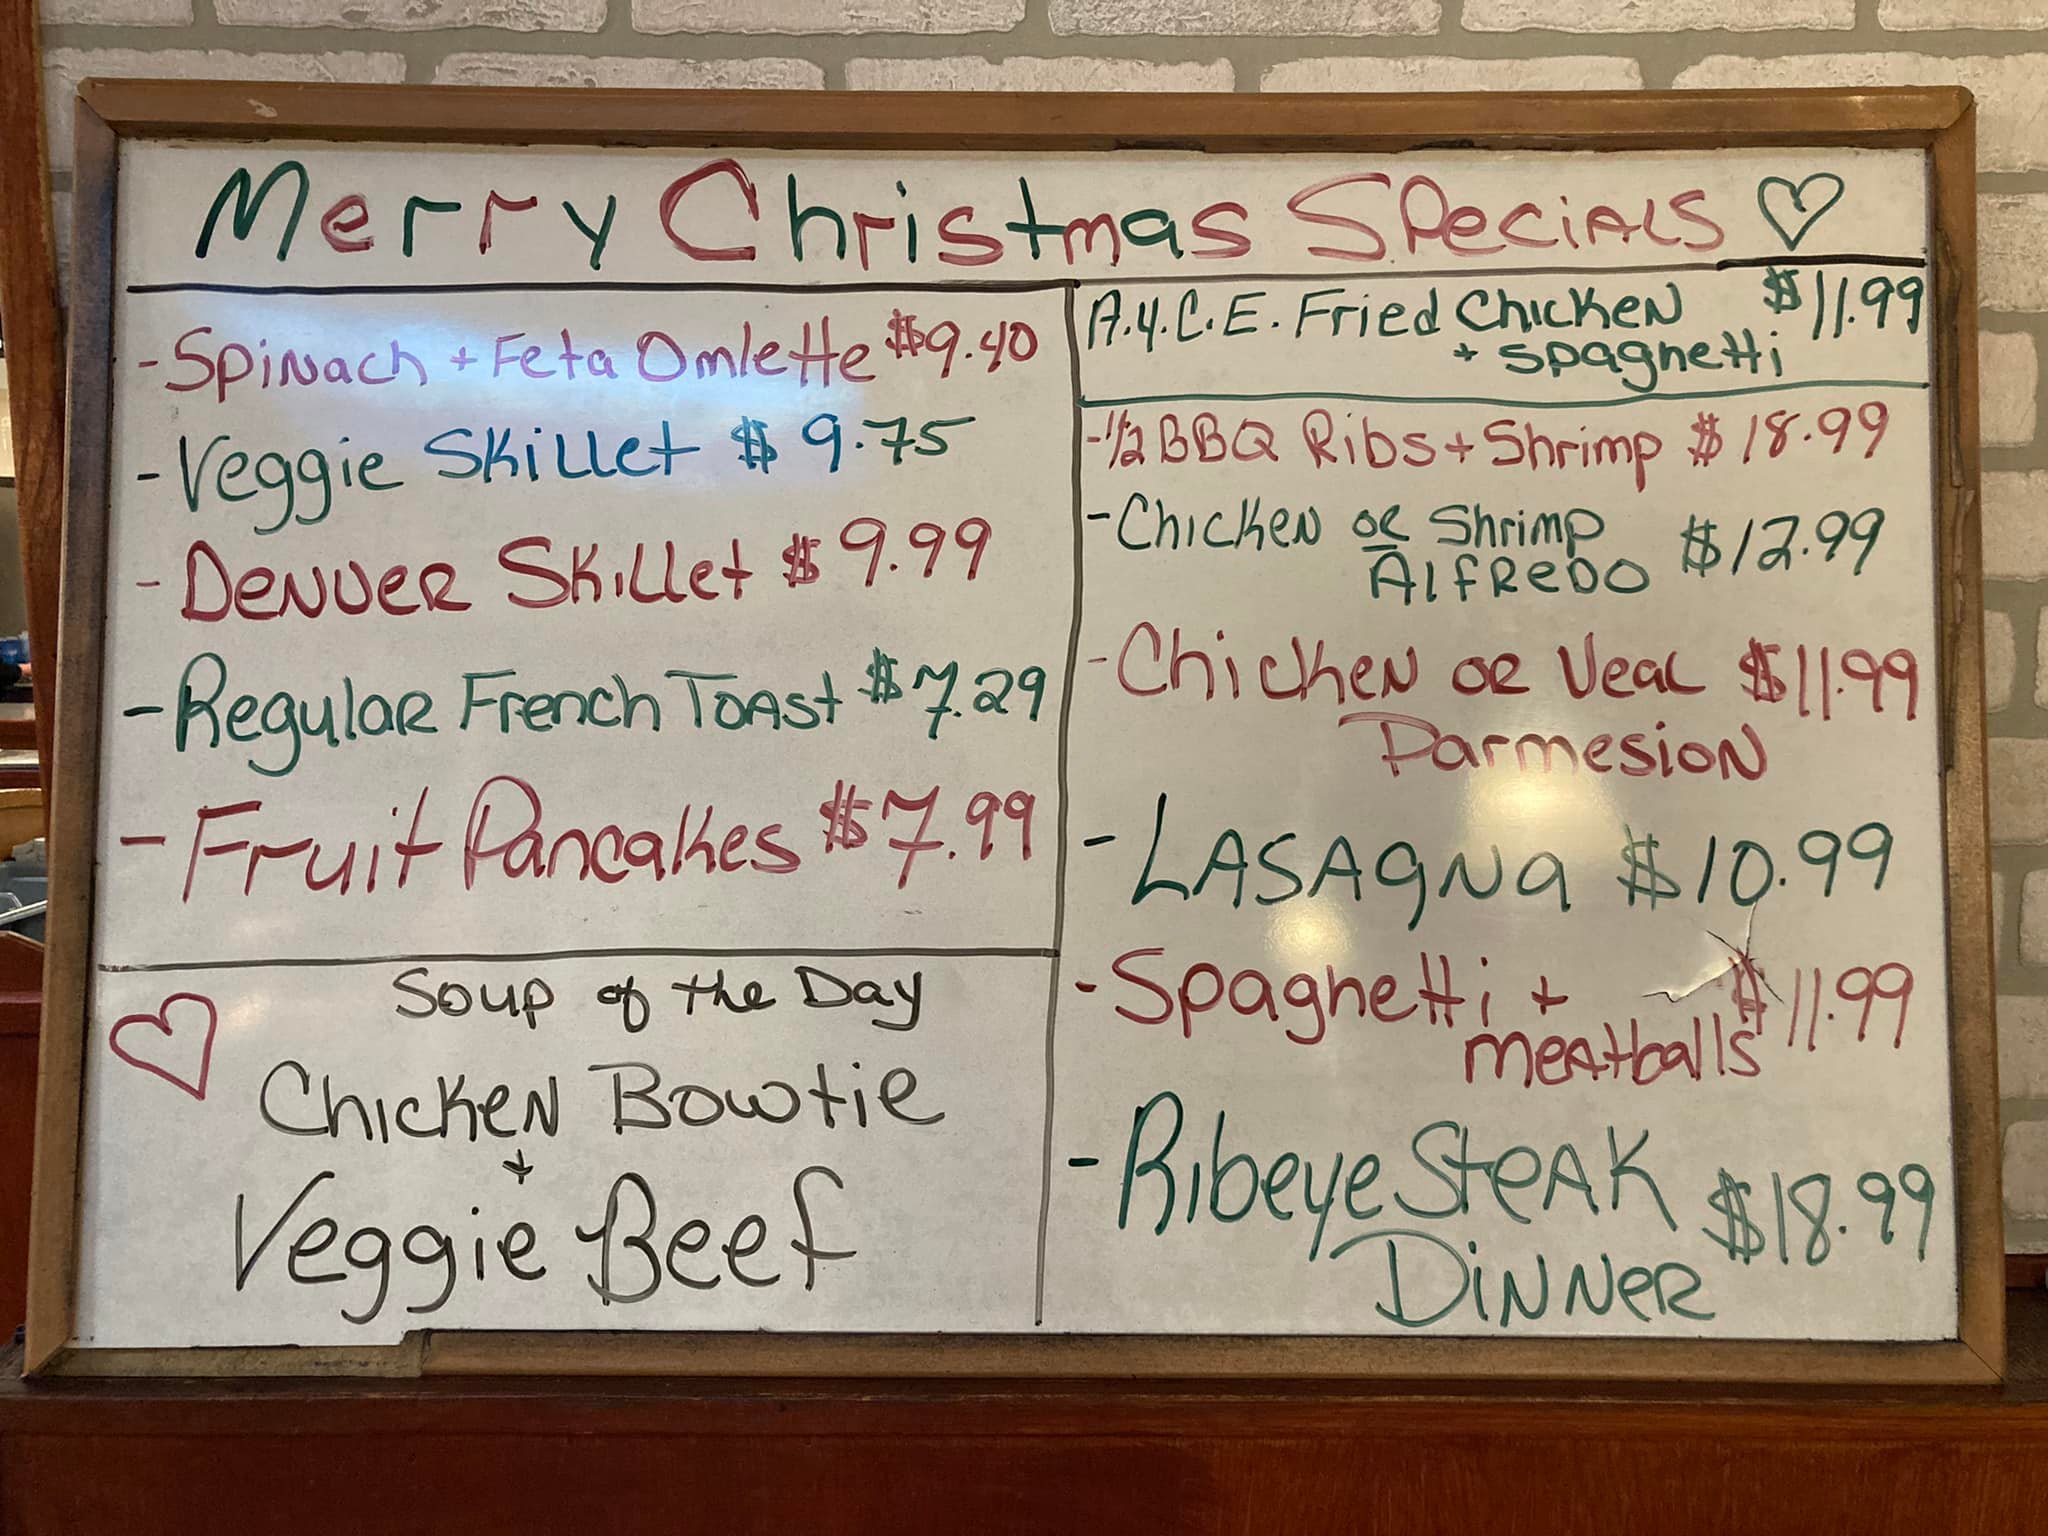 Merry Christmas Specials
- Spinach + Feta Omlette $9.40
- Veggie Skillet $ 9.75
- Denver Skillet $ 9.99
- Regular French Toast $7.29
- Fruit Pancakes $7.99
Soup of the Day
Chicken Bowtie
+
Veggie Beef
A.Y.C.E. Fried Chicken $11.99
+ Spaghetti
- 1/2 BBQ Ribs + Shrimp $18.99
- Chicken or Shrimp $12.99
Alfredo
- Chicken or Veal $11.99
Parmesion
- Lasagna $10.99
- Spaghetti + $11.99
meatballs
- Ribeye Steak $18.99
Dinner